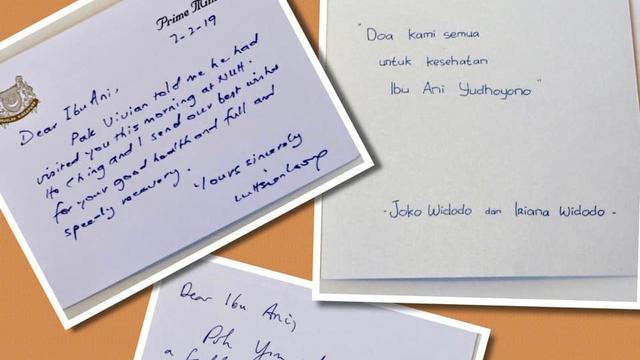 Prime Min
7-2-19
Dear Ibu Ani,
Pak Vivian told me he had
visited you this morning at NUH.
Ho Ching and I send our best wishes
for your good health and full and
speedy recovery.
Yours sincerely
"Doa kami semua
untuk kesehatan
Ibu Ani Yudhoyono"
- Joko Widodo dan Iriana Widodo -
Dear Ibu Ani,